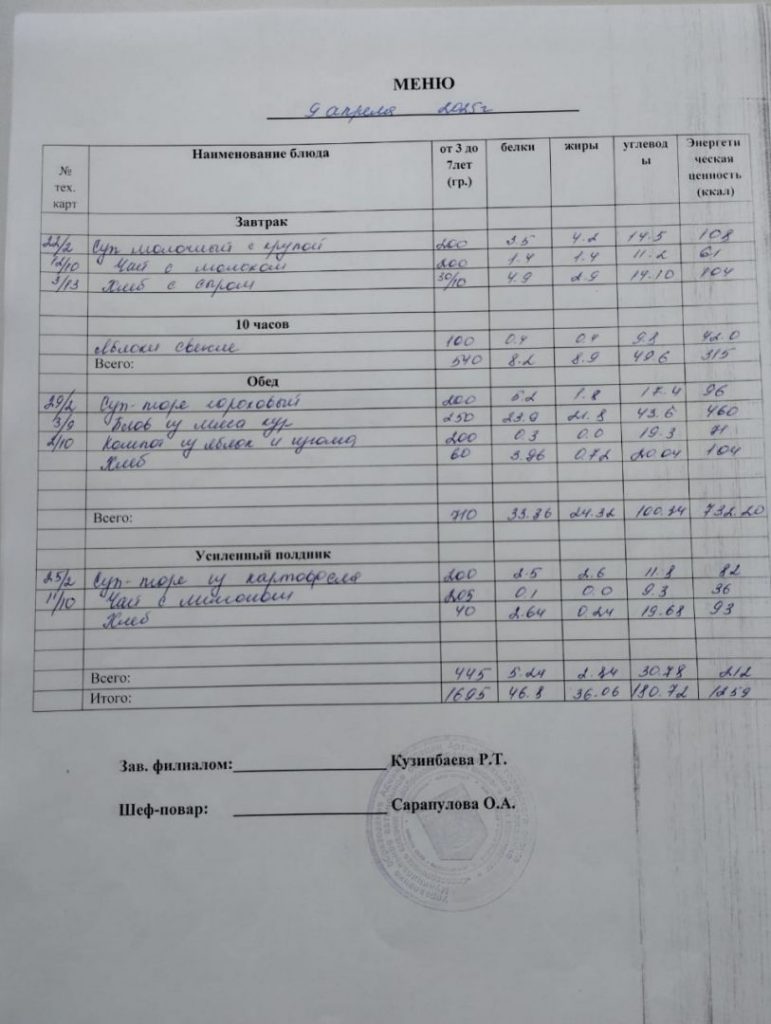 МЕНЮ
9 апреля 2025г
№ тех. карт Наименование блюда от 3 до 7лет (гр.) белки жиры углеводы Энергетическая ценность (ккал)
Завтрак
22/2 Суп молочный с крупой 200 3.5 4.2 14.5 108
12/10 Чай с молоком 200 1.4 1.4 11.2 61
3/13 Хлеб с сыром 30/10 4.9 2.9 14.10 104
10 часов
Яблоки свежие 100 0.4 0.4 9.8 42.0
Всего: 540 8.2 8.9 49.6 315
Обед
29/2 Суп-пюре гороховый 200 5.2 1.8 17.4 96
3/9 Плов из мяса кур 250 23.9 21.8 43.6 460
2/10 Компот из яблок и изюма 200 0.3 0.0 19.3 71
Хлеб 60 3.96 0.72 20.04 104
Всего: 710 33.36 24.32 100.34 732.20
Усиленный полдник
25/2 Суп-пюре из картофеля 200 2.5 2.6 11.8 82
11/10 Чай с лимоном 205 0.1 0.0 9.3 36
Хлеб 40 2.64 0.24 19.68 93
Всего: 445 5.24 2.84 30.78 212
Итого: 1695 46.8 36.06 180.72 1259
Зав. филиалом: Кузинбаева Р.Т.
Шеф-повар: Сарапулова О.А.